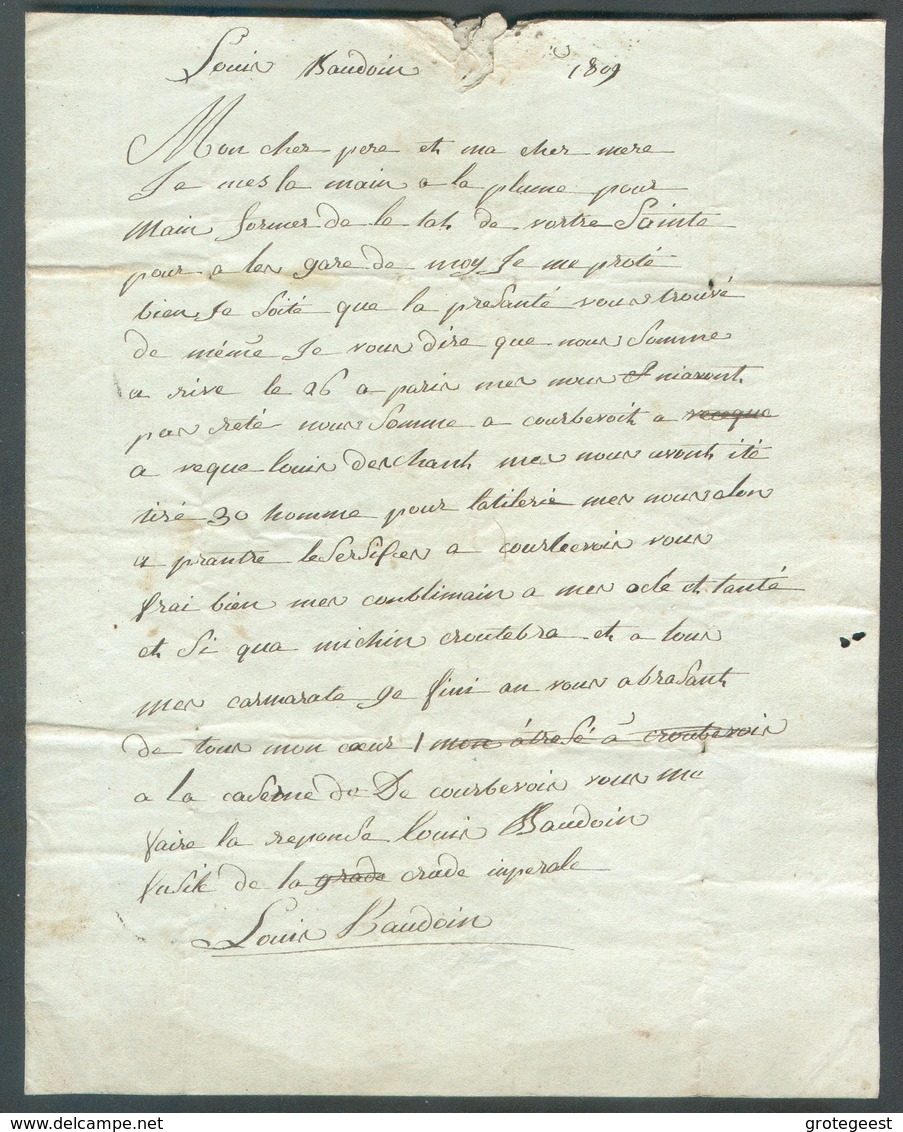 Louis Baudoin 1809
Mon cher pere et ma cher mere
Je mes la main a la plume pour
main former de le tat de vortre Sainte
pour a les gare de moy Je me proté
bien Je Soité que la presanté vous trouvé
de méme Je vous dire que nous Somme
a rive le 26 a paris mes nous niavont
pas creté nous Somme a courbevoit a
a veque louis deschant mes nous avont ité
tiré 30 homme pour latilerie mes nous alon
a prantre leSerSifces a courbevois vous
frai bien mes conblimain a mes ocle et tanté
et Si qua michin croutebra et a tous
mes carmarate ge fini an vous abraSant
de tous mon cœur mon atresé a croutbevois
a la caserne de De courbevois vous me
faire la reponse louis Baudoin
fusile de la grade crade inperale
Louis Baudoin
delcampe.net
grotegeest